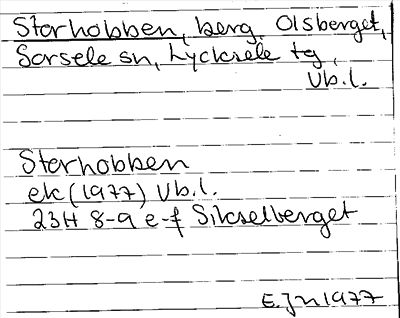 Storhobben, berg, Olsberget,
Sorsele sn, Lycksele tg,
Vb.l.
Storhobben
ek (1977) Vb.l.
23H 8-9 e-f Sikselberget
E.Jn 1977